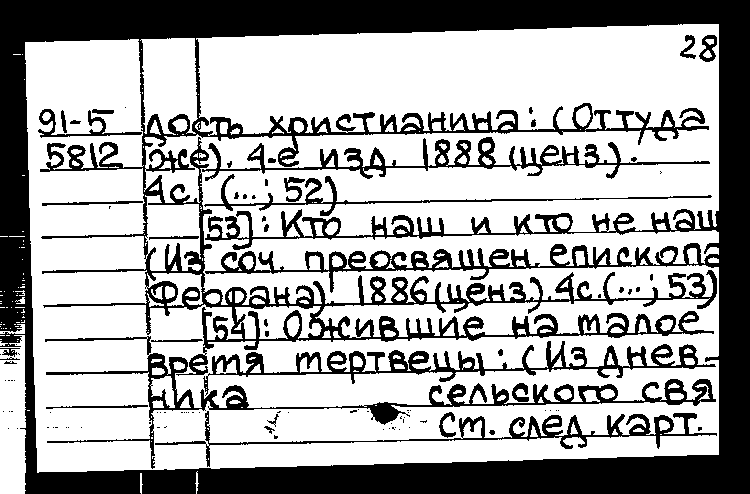 28
91-5 лость христианина: (Оттуда
5812 же). 4-е изд. 1888 (ценз.).
4с. (...; 52).
[53]: Кто наш и кто не наш
(Из соч. преосвящен. епископа
Феофана). 1886 (ценз.). 4с. (...; 53)
[54]: Ожившие на малое
время мертвецы: (Из днев-
ника сельского свя
См. след. карт.